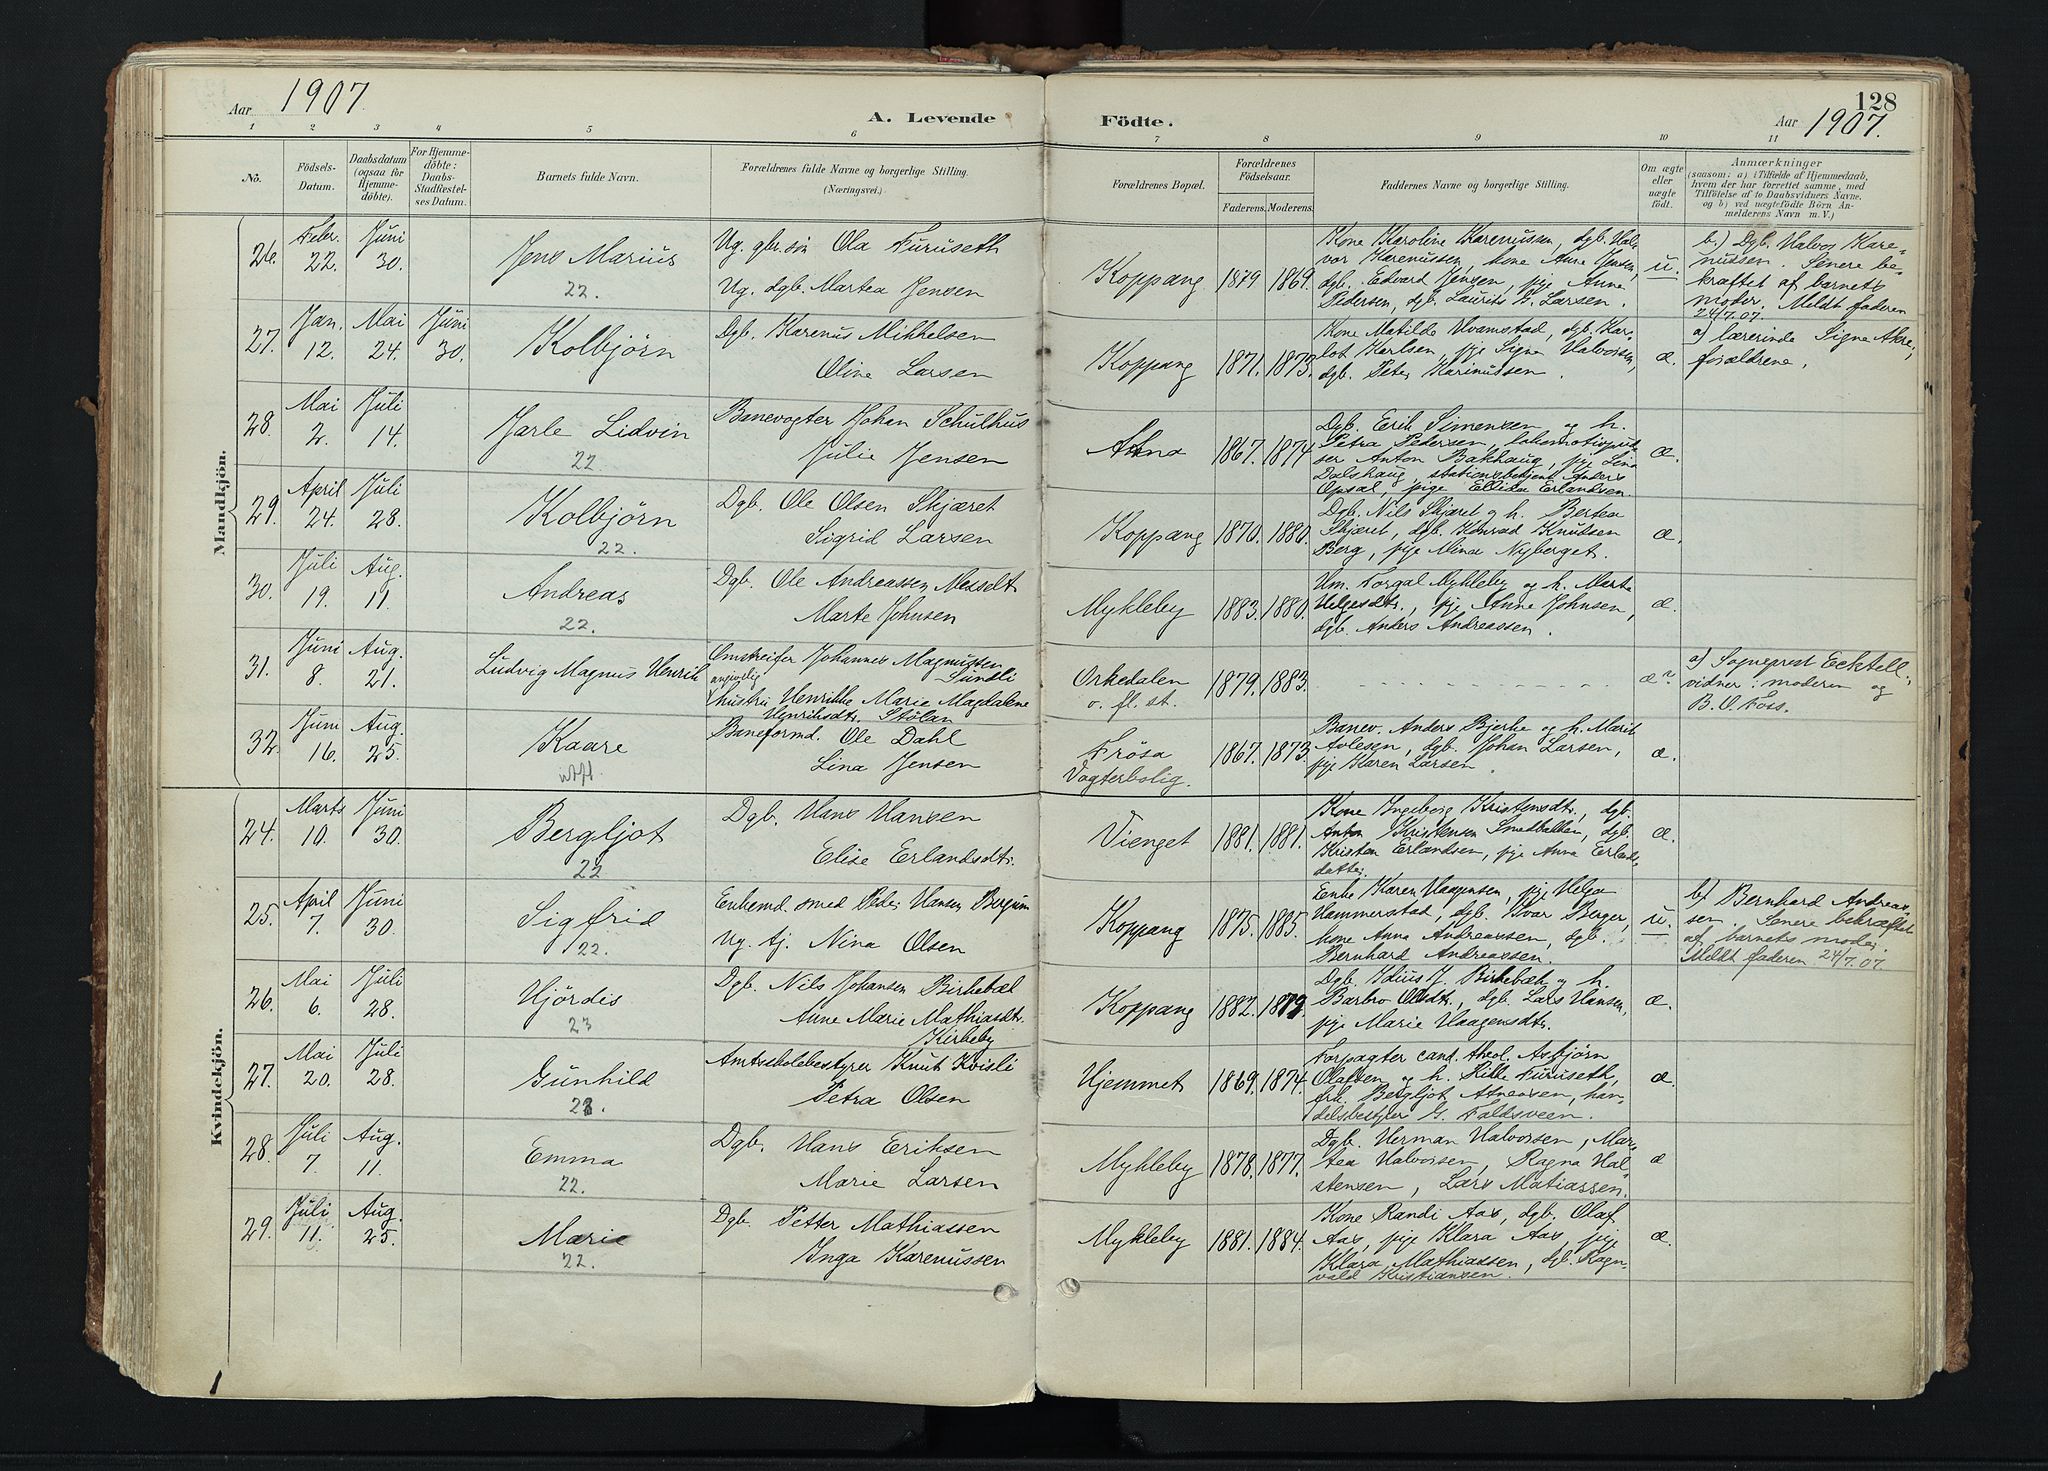 Aar 1907
A. Levende
Födte.
128
Aar 1907.
1 2 3 4 5 6 7 8 9 10 11
No.
Födsels-Datum.
Daabsdatum (ogsaa för Hjemme-döbte).
For Hjemme-döbte: Daabs-Stadfæstel-ses Datum.
Barnets fulde Navn.
Forældrenes fulde Navne og borgerlige Stilling. (Næringsvei.)
Forældrenes Bopæl.
Forældrenes Födselsaar.
Faderens. Moderens.
Faddernes Navne og borgerlige Stilling.
Om ægte eller uægte födt.
Anmærkninger
(saasom: a) i Tilfælde af Hjemmedaab, hvem der har forrettet samme, med Tilföielse af to Daabsvidners Navne, og b) ved uægtefödte Börn An-melderens Navn m. V.)
Mandkjön.
26. Febr. 22. Juni 30. Jens Marius 22.
Ug. gbr. sön Ola Furuseth
Ug. dgb. Martea Jensen
Koppang 1879 1869.
Kone Karoline Karenussen, dgb. Hal-
vor Karenussen, kone Anne Jensen,
dgb. Edvard Jensen, pige Anne
Pedersen, dgb. Laurits Larsen.
u.
b.) Dgb. Halvor Kare-
nussen. Senere be-
kræftet af barnets
moder. Meldt faderen
24/7.07.
27. Jan. 12. Mai 24. Juni 30. Kolbjörn
Dgb. Karenus Mikkelsen
Oline Larsen
Koppang 1871. 1873.
Kone Matilde Hvamstad, dgb. Kar-
lot Karlsen, pige Signe Halvorsen,
dgb. Peter Karinussen.
æ.
a) lærerinde Signe Akre,
forældrene.
28. Mai 2. Juli 14. Jarle Lidvin 22.
Banevogter Johan Schulhus
Julie Jensen
Atna 1867. 1874
Dgb. Erik Simensen og h.
Petra Pedersen, lokomotivpud-
ser Anton Bakhaug, pige Lina
Dalshaug, stationsbetjent Anders
Opsal, pige Ellisa Erlandsen.
æ.
29. April 24. Juli 28. Kolbjörn 22.
Dgb. Ole Olsen Skjæret
Sigrid Larsen
Koppang 1870. 1880.
Dgb. Nils Skjæret og h. Bertea
Skjæret, dgb. Konrad Knudsen
Berg, pige Mina Nyberget.
æ.
30. Juli 19. Aug. 11. Andreas 22.
Dgb. Ole Andreassen Messelt
Marte Johnsen
Mykleby 1883. 1880.
Um. Torgal Mykleby og h. Marte
Helgesdtr., pige Anne Johnsen,
dgb. Anders Andreassen.
æ.
31. Juni 8. Aug. 21. Ludvig Magnus Henrik
Omstreifer Johannes Magnussen
Sundli
angivelig
hustru Henrikke Marie Magdalene
Henriksdtr. Stölan
Orkedalen
o. fl. st.
1879. 1883.
æ?
a) Sogneprest Ecktell,
vidner: moderen og
B. O. Foss.
32. Juni 16. Aug. 25. Kaare utfl.
Baneformd. Ole Dahl
Lina Jensen
Frösa
Vogterbolig.
1867. 1873.
Banev. Anders Bjerke og h. Marit
Avlesen, dgb. Johan Larsen,
pige Karen Larsen.
æ.
Kvindekjön.
24. Marts 10. Juni 30. Bergljot 22
Dgb. Hans Hansen
Elise Erlandsdtr.
Vienget 1881. 1881.
Kone Ingeborg Kristensdtr., dgb.
Anton Kristensen Smedbakken, dgb.
Kristen Erlandsen, pige Anna Erlands-
datter.
æ.
25. April 7. Juni 30. Sigfrid 22.
Enkemd. smed Peder Hansen Bergum
Ug. tj. Nina Olsen
Koppang 1875. 1885.
Enke Karen Haagensen, pige Helga
Hammerstad, dgb. Ivar Berger,
kone Anna Andreassen, dgb.
Bernhard Andreassen.
u.
b) Bernhard Andreas-
sen. Senere bekræftet
af barnets moder.
Meldt faderen 24/7.07.
26. Mai 6. Juli 28. Hjördis 23
Dgb. Nils Johansen Birkebæk
Anne Marie Mathiasdtr.
Kirkeby
Koppang 1882. 1879.
Dgb. Idius J. Birkebæk og h.
Barbro Olsdtr., dgb. Lars Hansen,
pige Marie Haagensdtr.
æ.
27. Mai 20. Juli 28. Gunhild 23.
Amtsskolebestyrer Knut Kvisli
Petra Olsen
Hjemmet 1869. 1874.
Forpagter cand. theol. Asbjörn
Olafsen og h. Rikke Furuseth,
frk. Bergljot Atneosen, han-
delsbestyrer G. Faldsveen.
æ.
28. Juli 7. Aug. 11. Emma 22.
Dgb. Hans Eriksen
Marie Larsen
Mykleby 1878. 1877.
Dgb. Herman Halvorsen, Mar-
tea Halvorsen, Ragna Hal-
stensen, Lars Matiassen.
æ
29. Juli 11. Aug. 25. Marie 22.
Dgb. Petter Mathiassen
Inga Karenussen
Mykleby 1881. 1884.
Kone Randi Aas, dgb. Olaf
Aas, pige Klara Aas, pige
Klara Mathiassen, dgb. Ragn-
vald Kristiansen.
æ.
1